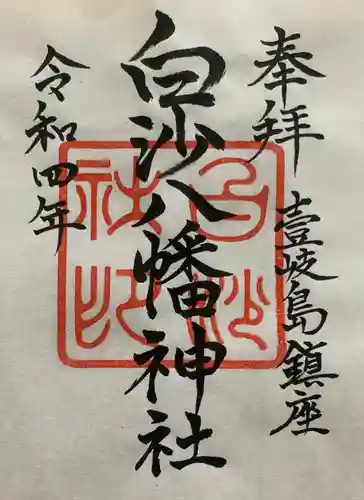 奉拝
壹岐島鎮座
白沙八幡神社
令和四年
白沙
社印